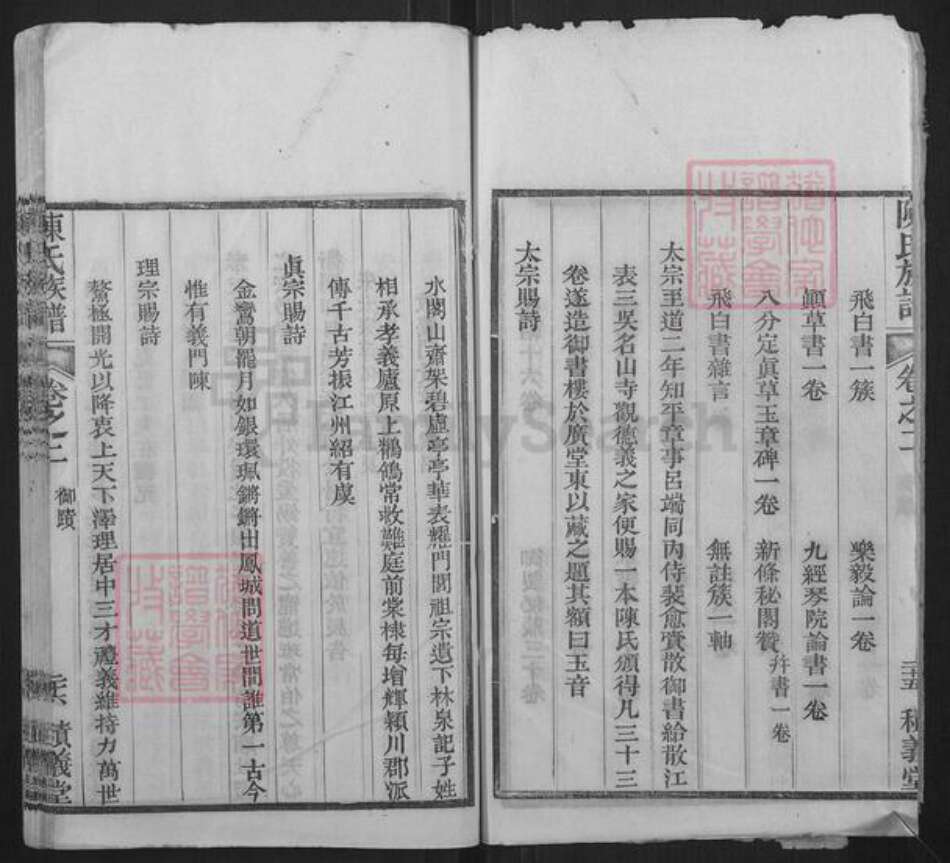 陳氏族譜 卷之二 二十五 積義堂
飛白書一簇 樂毅論一卷
顚草書一卷 九經琴院論書一卷
八分定眞草玉章碑一卷 新條秘閣贊幷書一卷
飛白書雜言 無註簇一軸
太宗至道二年知平章事呂端同內侍裴愈賫散御書給散江
表三吳名山寺觀德義之家便賜一本陳氏頒得凡三十三
卷遂造御書樓於廣堂東以藏之題其額曰玉音
太宗賜詩
水閣山齋架碧虛亭亭華表耀門閭祖宗遺下林泉記子姓
相承孝義廬原上鶺鴒常收難庭前棠棣每增輝潁川郡派
傳千古芳振江州紹有虞
眞宗賜詩
金鸞朝罷月如銀環珮鏘鏘出鳳城問道世間誰第一古今
惟有義門陳
理宗賜詩
鰲極開光以降衷上天下澤理居中三才禮義維持力萬世
陳氏族譜 卷之二 御蹟 二十六 積義堂
FamilySearch